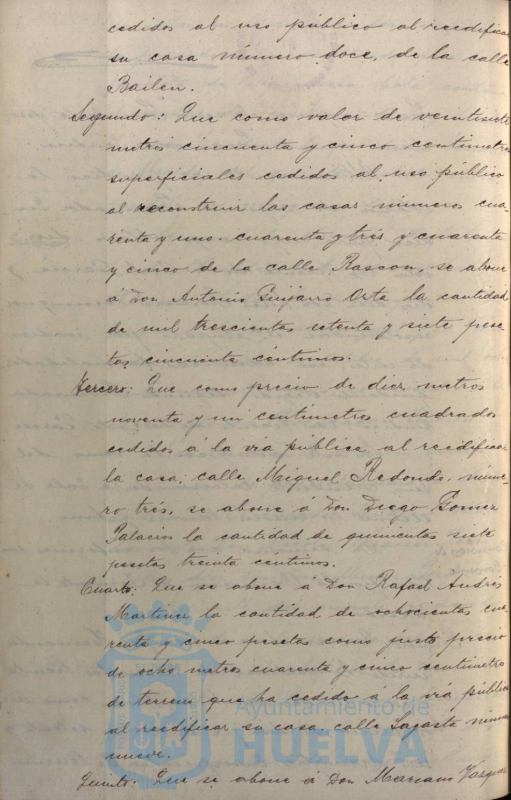 cedidos al uso público al reedificar
su casa número doce, de la calle
Bailen.
Segundo: Que como valor de veintisiete
metros cincuenta y cinco centímetros
superficiales cedidos al uso público
al reconstruir las casas números cua-
renta y uno, cuarenta y tres y cuarenta
y cinco de la calle Rascon, se abone
á Don Antonio Guijarro Orta la cantidad
de mil trescientas setenta y siete pese-
tas, cincuenta céntimos.
Tercero: Que como precio de diez metros
noventa y un centímetros cuadrados
cedidos á la via pública al reedificar
la casa, calle Miguel Redondo, núme-
ro tres, se abone á Don Diego Gomez
Palacios la cantidad de quinientas siete
pesetas treinta centimos.
Cuarto: Que se abone á Don Rafael Andrés
Martinez la cantidad de ochocientas cua-
renta y cinco pesetas como justo precio
de ocho metros cuarenta y cinco centímetros
de terreno que ha cedido á la via pública
al reedificar su casa calle Sagasta número
nueve.
Quinto: Que se abone á Don Mariano Vazquez
Ayuntamiento de
HUELVA